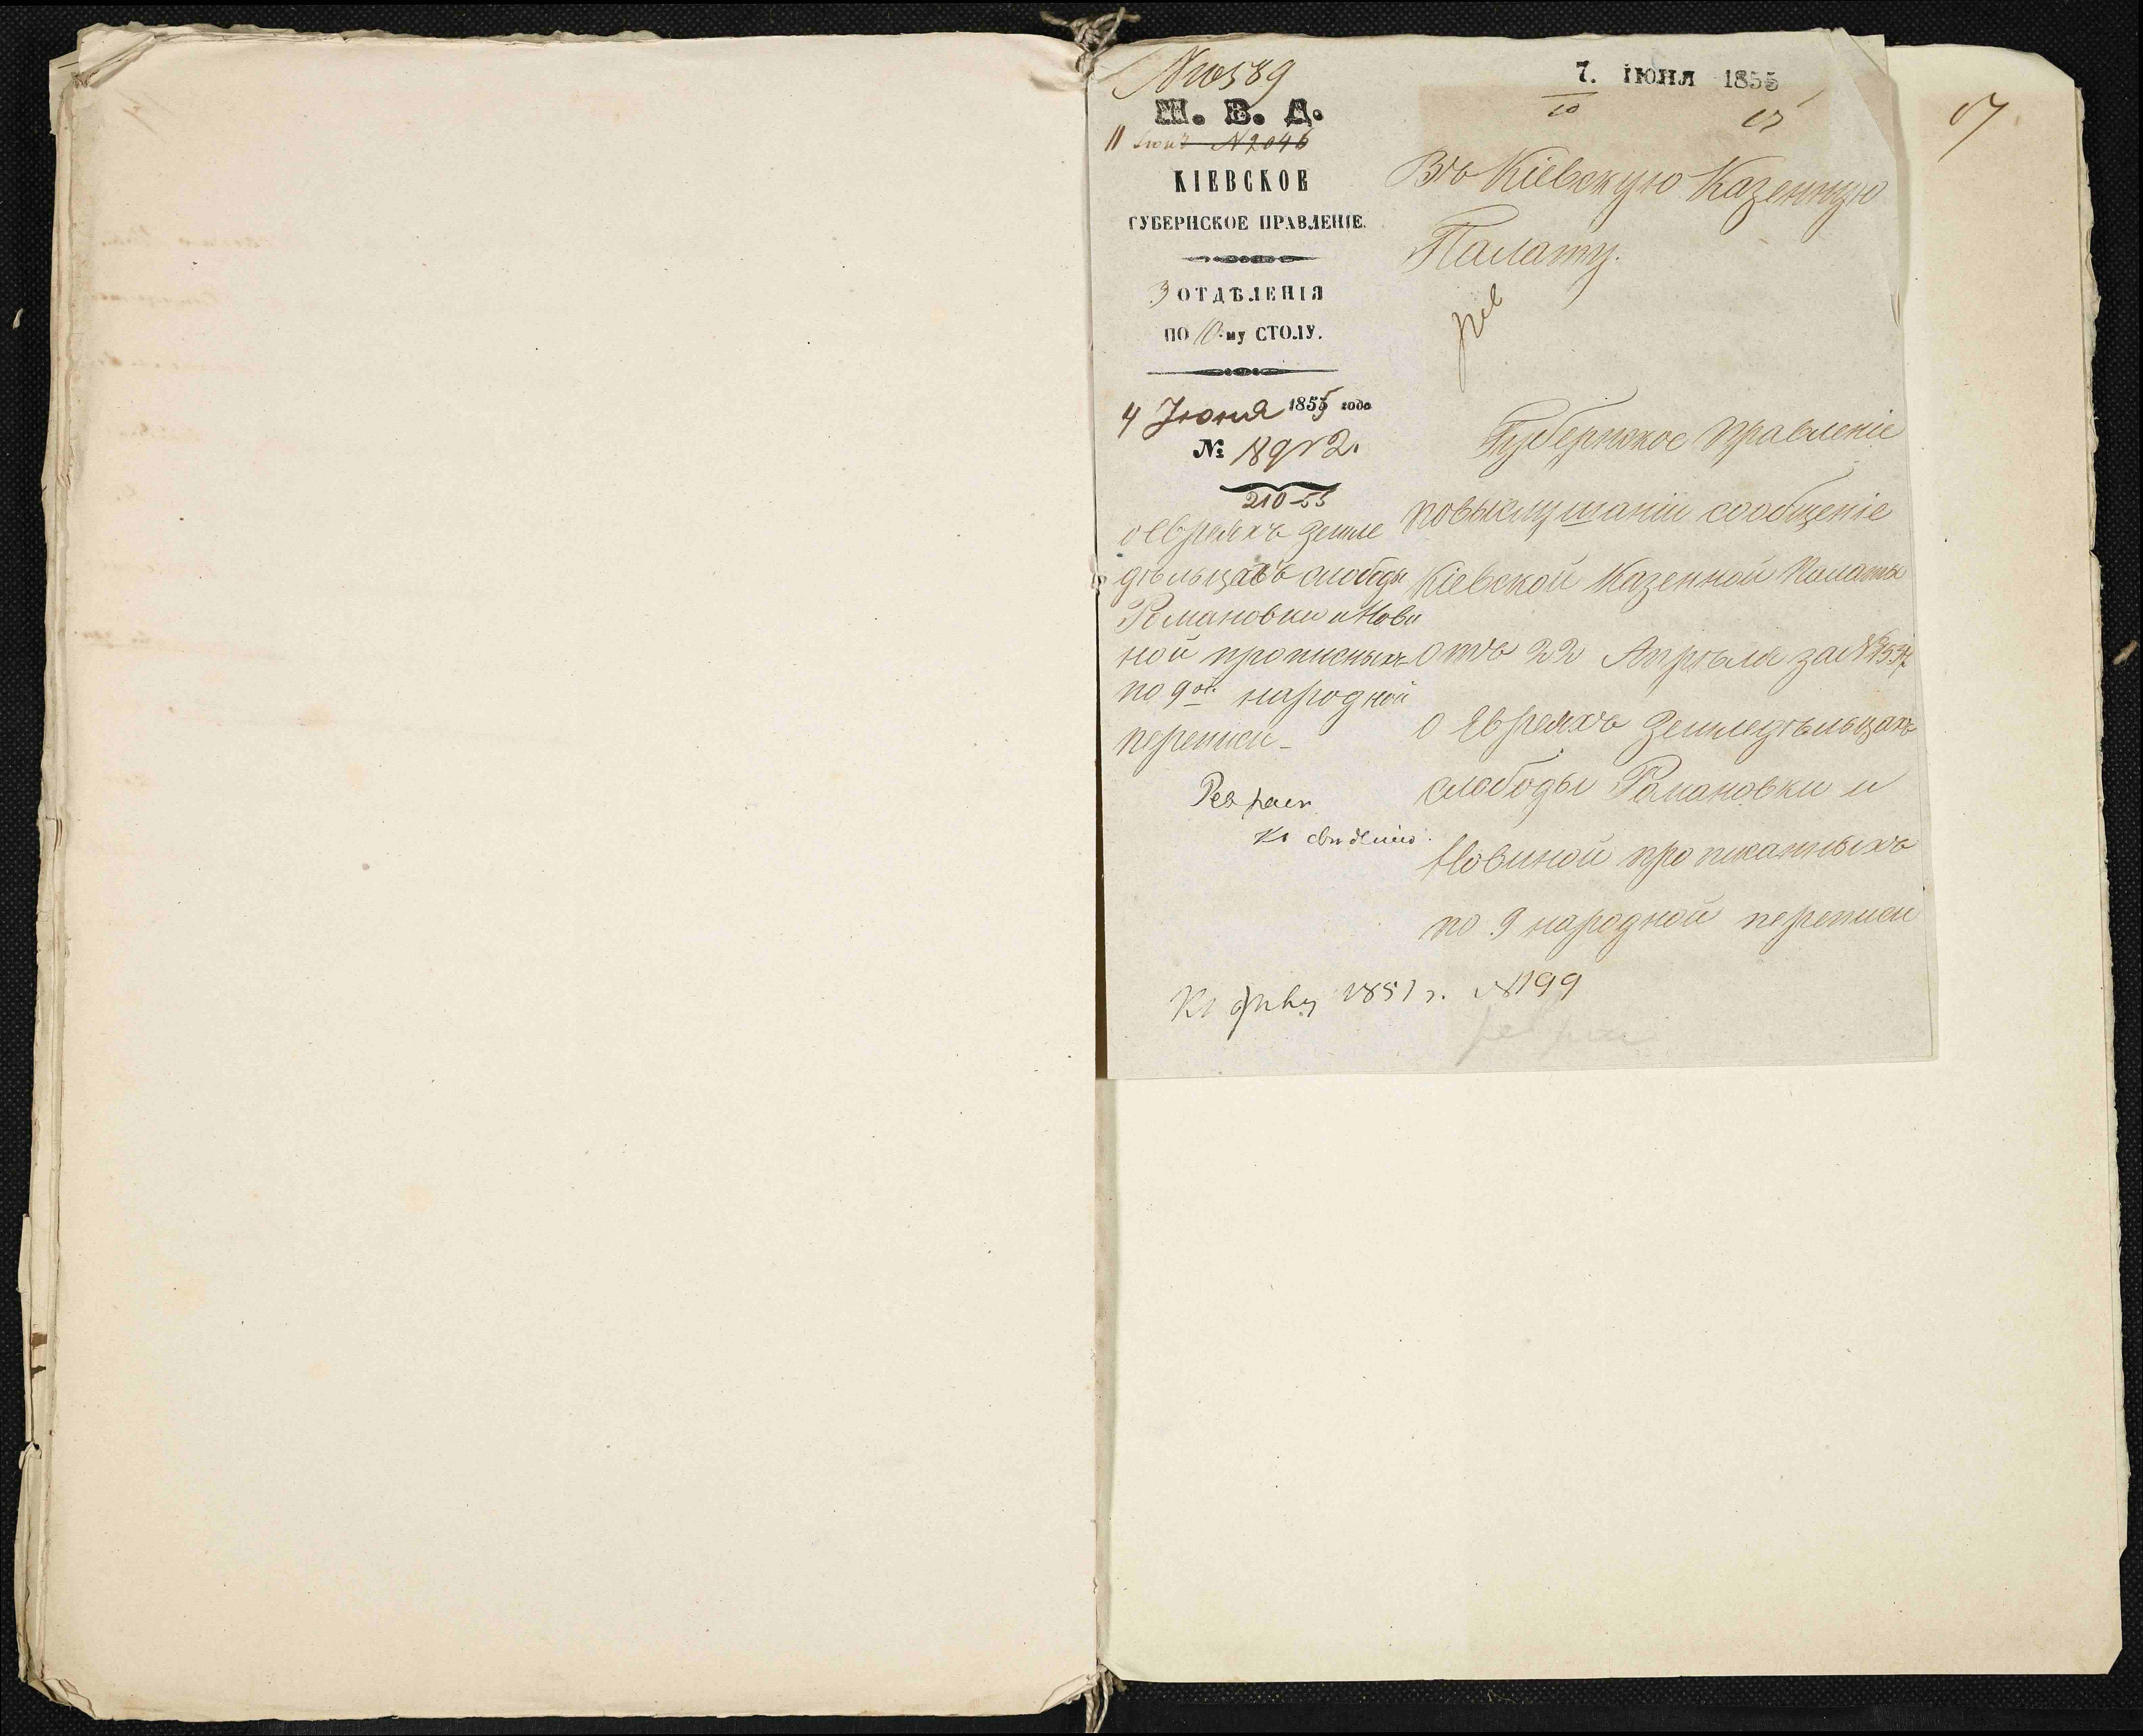 № 10589
7. ІЮНЯ 1855
М. В. Д.
11 Іюня № 2046
КІЕВСКОЕ
ГУБЕРНСКОЕ ПРАВЛЕНІЕ.
3 ОТДѢЛЕНІЯ
ПО 10-му СТОЛУ.
4 Іюня 1855 года
№ 18912.
210-55
о Евреяхъ земле
дѣльцахъ слободы
Романовки и Нови
ной прописныхъ
по 9ой народной
переписи
Рев
Къ свѣденію.
Въ Кіевскую Казенную
Палату.
Губернское Правленіе
повыслушаніи сообщеніе
Кіевской Казенной Палаты
отъ 22 Апрѣля за №
о Евреяхъ земледѣльцахъ
слободы Романовки и
Новиной прописанныхъ
по 9 народной переписи
Къ 1851 г. № 199